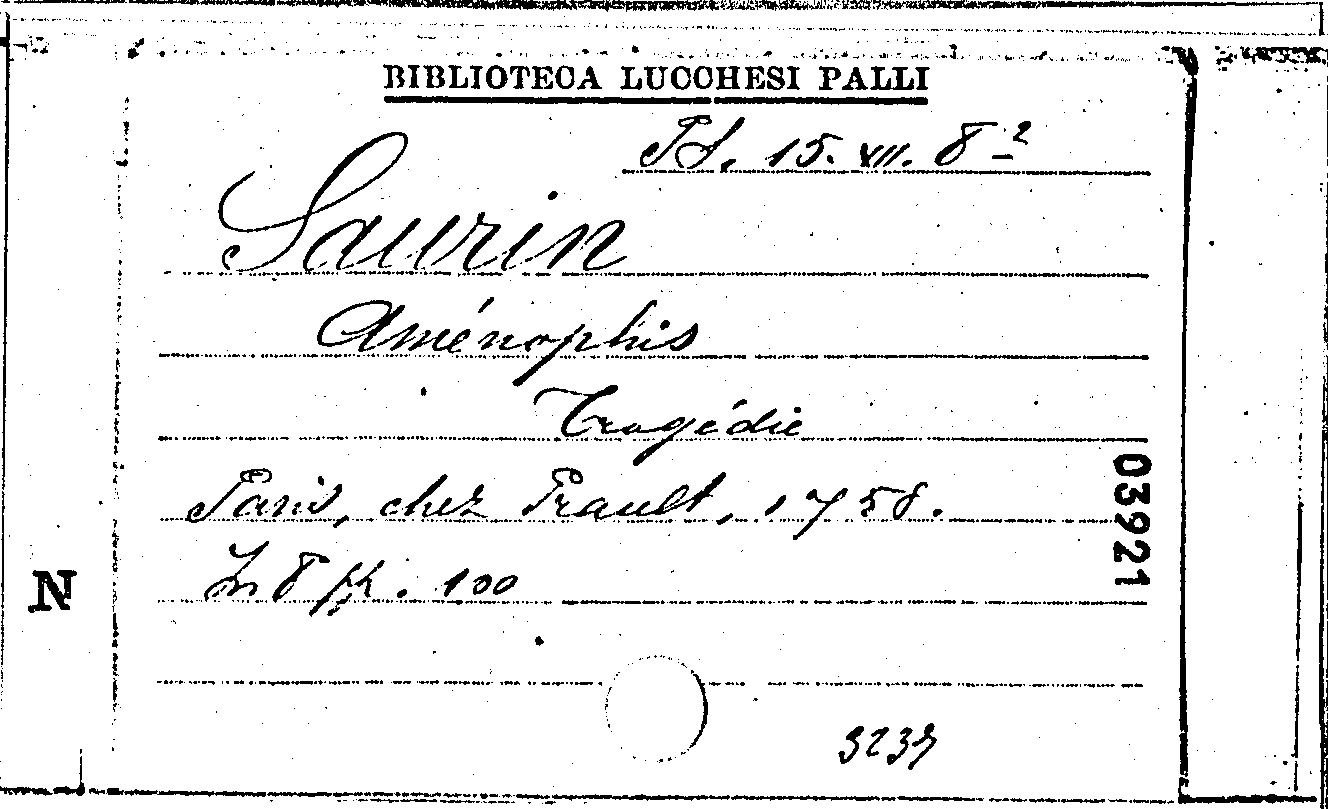 BIBLIOTECA LUCCHESI PALLI
15. XII. 8-²
Saurin
Aménophis
Tragédie
Paris, chez Prault, 1758.
In 8 pp. 100
03921
N